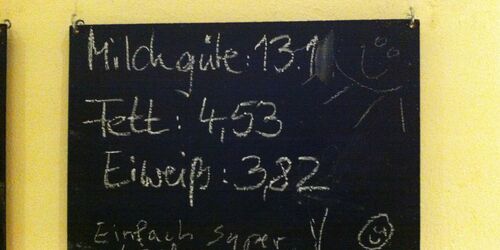 Milchgüte: 13.1
Fett: 4,53
Eiweiß: 3,82
Einfach super